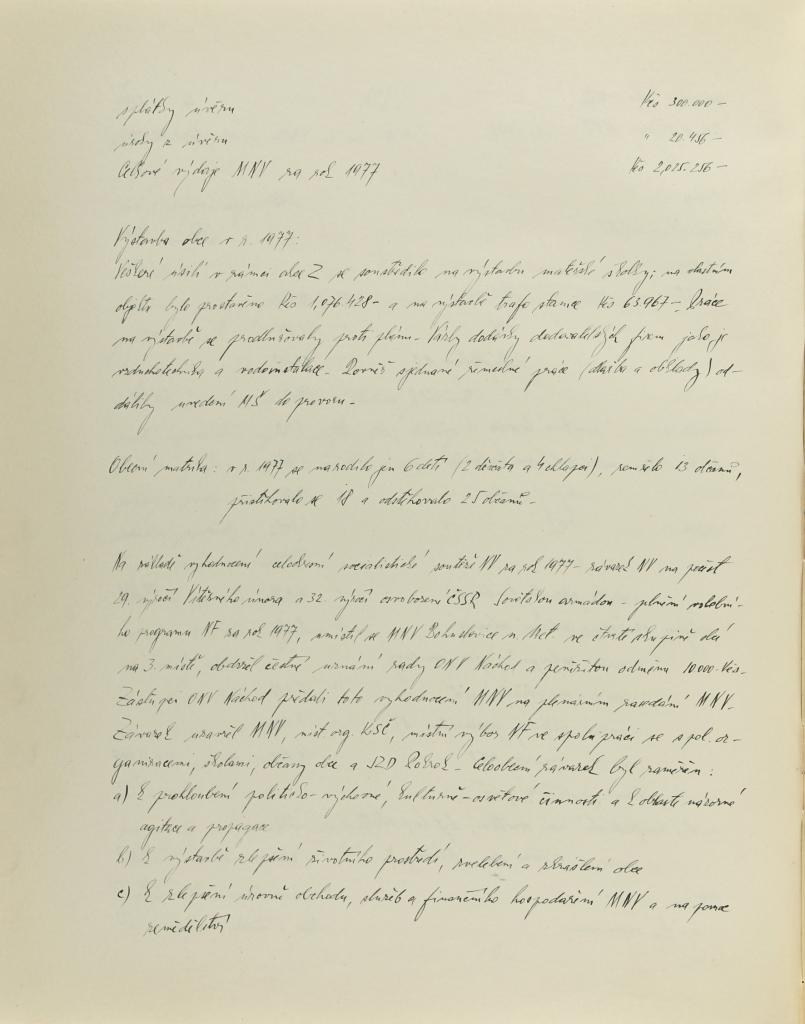 splátky úvěru Kčs 300.000 –
úroky z úvěru " 20.456 –
Celkové výdaje MNV za rok 1977 Kčs 2,025.256 –
Výstavba obce v r. 1977:
Veškeré úsilí v rámci akce Z se soustředilo na výstavbu mateřské školky; na vlastním
objektu bylo prostavěno Kčs 1,076.428 – a na výstavbě trafo stanice Kčs 63.967 –. Práce
na výstavbě se prodlužovaly proti plánu – dodávky dodavatelských firem jako je
vzduchotechnika a vodoinstalace – Rovněž sjednané řemeslné práce (dlažba a obklady) od-
dálily uvedení MŠ do provozu –
Obecní matrika: v r. 1977 se narodilo jen 6 dětí (2 děvčata a 4 chlapci), zemřelo 13 občanů,
přistěhovalo se 18 a odstěhovalo 25 občanů –
Na základě vyhodnocení celookresní socialistické soutěže NV za rok 1977 – závazek NV na počest
29. výročí Vítězného února a 32. výročí osvobození ČSSR Sovětskou armádou – plnění volební-
ho programu NF za rok 1977, umístil se MNV Bohuslavice n. Met. ve čtvrté skupině obcí
na 3. místě, obdržel čestné uznání rady ONV Náchod a peněžitou odměnu 10.000 Kčs –
Zástupci ONV Náchod předali toto vyhodnocení MNV na plenárním zasedání MNV –
Závazek uzavřel MNV, míst. org. KSČ, místní výbor NF ve spolupráci se spol. or-
ganizacemi, školami, občany obce a JZD Pokrok – Celoobecní závazek byl zaměřen:
a) K prohloubení politicko-výchovné, kulturně-osvětové činnosti a k oblasti názorné
agitace a propagace
b) K výstavbě zlepšení životního prostředí, zvelebení a zkrášlení obce
c) K zlepšení úrovně obchodu, služeb a finančního hospodaření MNV a na pomoc
zemědělství